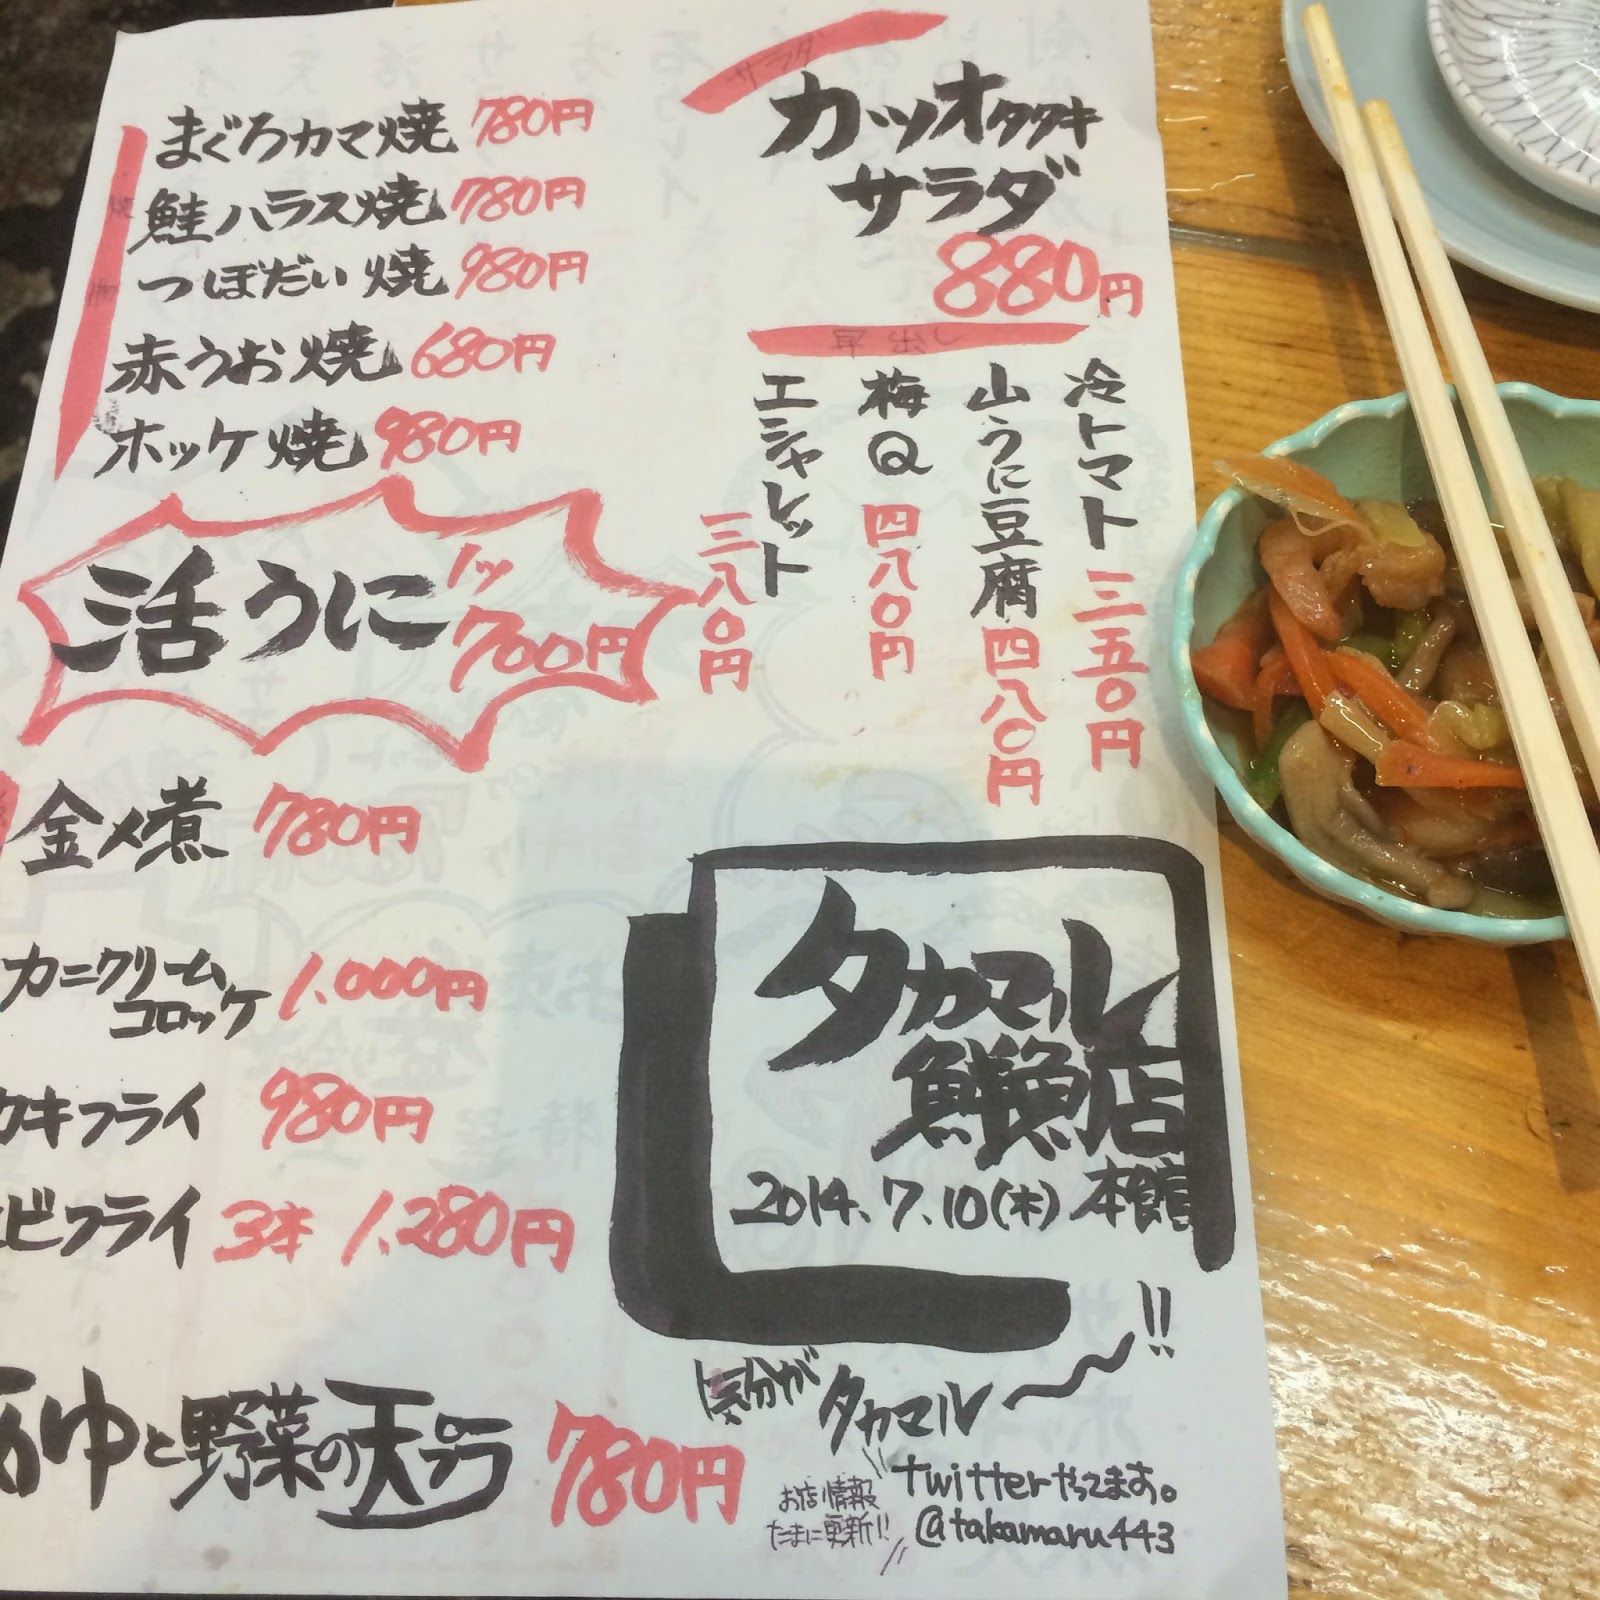 サラダ
カツオタタキ
サラダ
880円
早出し
冷トマト 三五〇円
山うに豆腐 四八〇円
梅Q 四八〇円
エシャレット 三八〇円
焼物
まぐろカマ焼 780円
鮭ハラス焼 780円
つぼだい焼 980円
赤うお焼 680円
ホッケ焼 980円
活うに 1ッ 700円
金メ煮 780円
カニクリーム
コロッケ 1,000円
カキフライ 980円
エビフライ 3本 1,280円
あゆと野菜の天プラ 780円
タカマル
鮮魚店
2014.7.10(木) 本館
気分が
タカマル〜!!
twitterやってます。
@takamaru443
お店情報
たまに更新!!